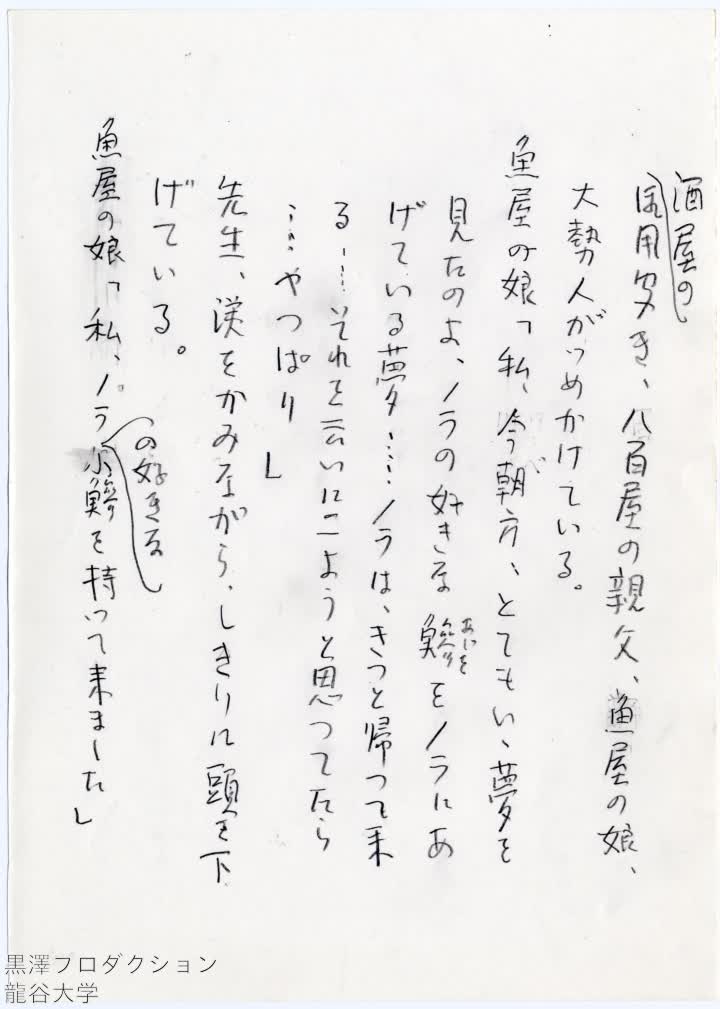 酒屋の
御用聞き、八百屋の親父、魚屋の娘、
大勢人がつめかけている。
魚屋の娘「私、今朝方、とてもいゝ夢を
見たのよ、ノラの好きな鯵をノラにあ
あじ
げている夢……ノラは、きつと帰つて来
る……それを云いにこようと思つてたら
……やつぱり」
先生、涙をかみながら、しきりに頭を下
げている。
魚屋の娘「私、ノラ
の好きな
小鯵を持つて来ました」
黒澤プロダクション
龍谷大学